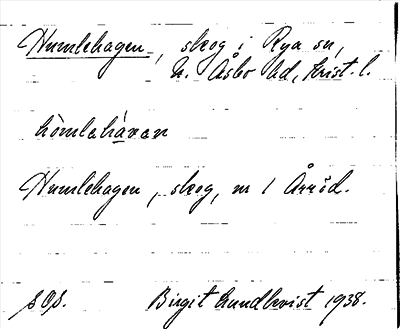 Humlehagen, skog i Rya sn,
N. Åsbo hd, Krist. l.
hòmlahá̱ɤan
Humlehagen, skog, nr 1 Årröd.
Birgit Lundkvist 1938.